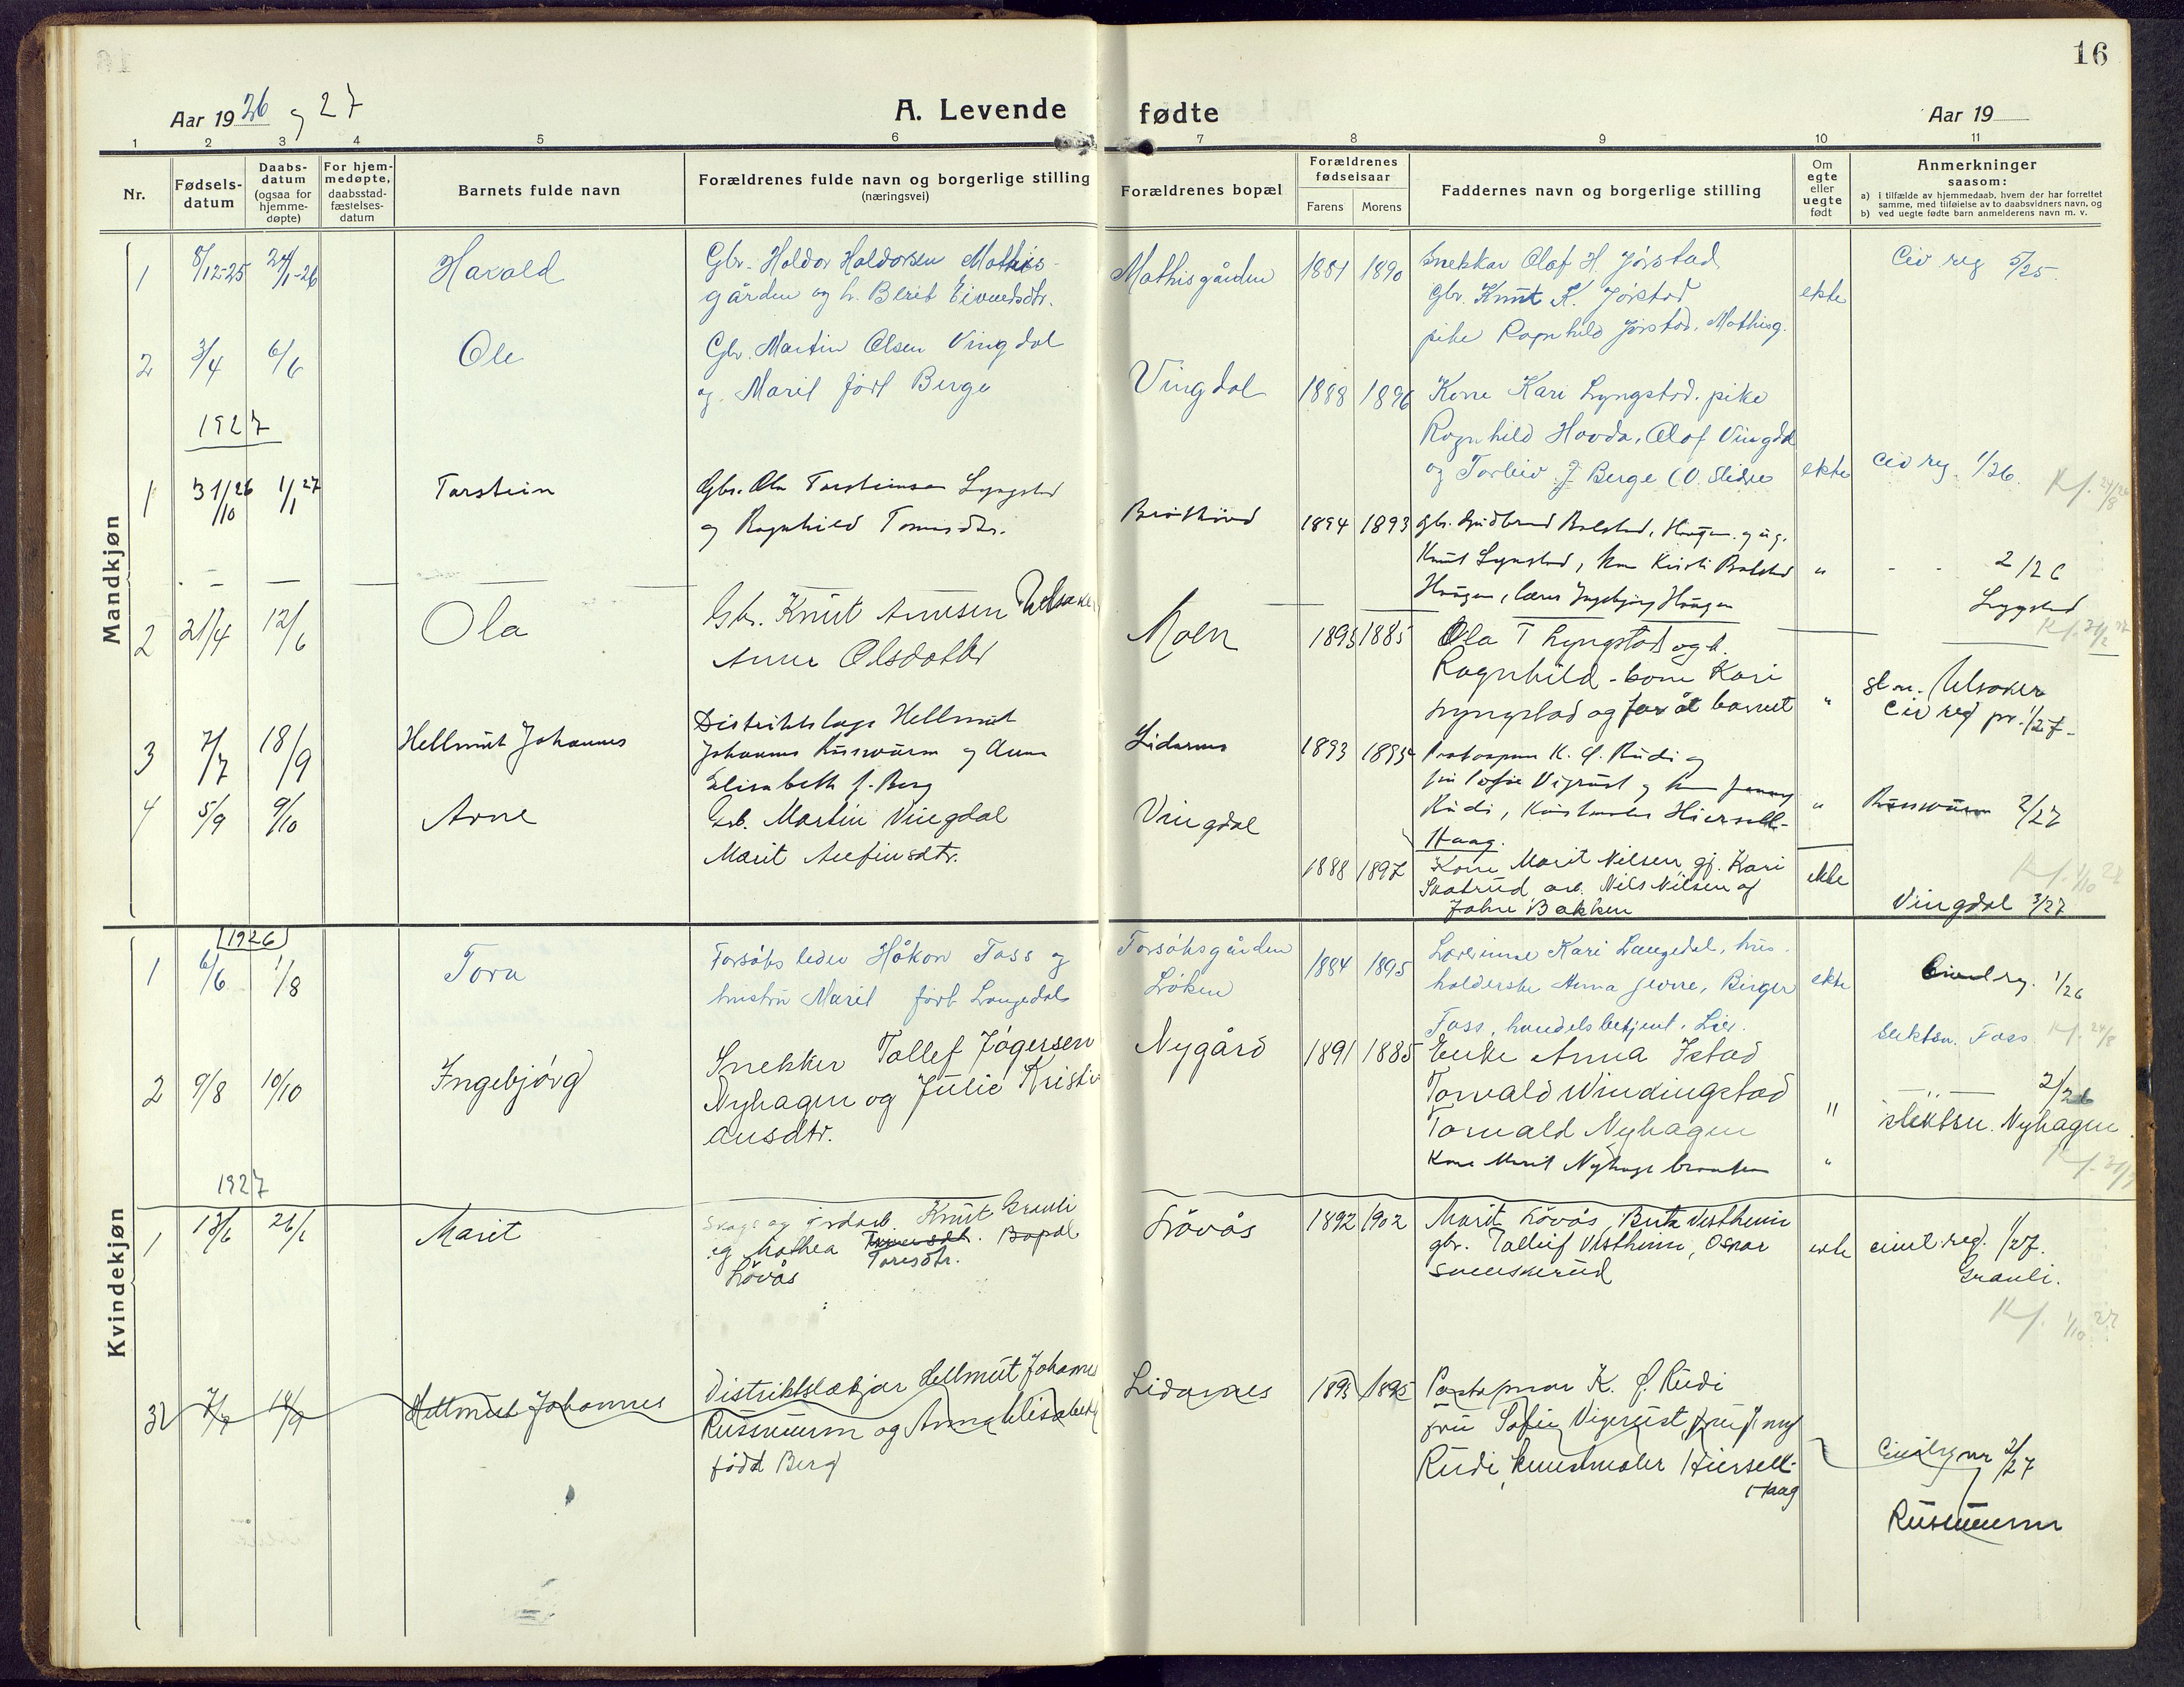 16
Aar 1926 og 27
A. Levende fødte
Aar 19
1 2 3 4 5 6 7 8 9 10 11
Nr.
Fødsels-
datum
Daabs-
datum
(ogsaa for
hjemme-
døpte)
For hjem-
medøpte,
daabsstad-
fæstelses-
datum
Barnets fulde navn
Forældrenes fulde navn og borgerlige stilling
(næringsvei)
Forældrenes bopæl
Forældrenes
fødselsaar
Farens
Morens
Faddernes navn og borgerlige stilling
Om
egte
eller
uegte
født
Anmerkninger
saasom:
a) i tilfælde av hjemmedaab, hvem der har forrettet
samme, med tilføielse av to daabsvidners navn, og
b) ved uegte fødte barn anmelderens navn m. v.
Mandkjøn
1 8/12-25 24/1-26 Harald
Gbr. Haldor Haldorsen Mathis-
gården og h. Berit Eivindsdtr.
Mathisgården 1881 1890
Snekker Olaf H. Jørstad
Gbr. Knut K. Jørstad
pike Ragnhild Jørstad, Mathisg.
ekte
Civ reg 5/25.
2 3/4 6/6 Ole
Gbr. Martin Olsen Vingdal
og Marit født Berge
Vingdal 1888 1896
Kone Kari Lyngstad. pike
Ragnhild Hovda, Olaf Vingdal
og Torleiv J. Berge (V. Slidre
ekte
Civ reg. 1/26.
Kf. 24/8 26
1927
1 31/10 26 1/1 27 Torstein
Gbr. Ola Torsteinsen Lyngstad
og Ragnhild Tomasdtr.
1894 1893
Gbr. Gudbrand Bolstad, Haugen og ug.
Knut Lyngstad, kone Kirsti Bolstad
Haugen, lærer Ingebjørg Haugen
"
2/26
Lyngstad
2 21/4 12/6 Ola
Gbr. Knut Arnesen Ulsaker
Anne Olsdatter
Moen 1895 1885
Ola T Lyngstad og h.
Ragnhild - kone Kari
Lyngstad og far åt barnet
"
sl.n. Ulsaker
Civ reg nr. 1/27-
3 7/7 18/9 Hellmut Johannes
Distriktslæge Hellmut
Johannes Russwurm og Anna
Elisabeth f. Berg
Lidarnes 1893 1895
K. O. Rudi og
fru Sofie Vigerust og fru Jenny
Rudi, Kunstmaler Hiersell-
Haag.
"
Russwurm 2/27
4 5/9 9/10 Arne
Grb. Martin Vingdal
Marit Arefinsdtr.
Vingdal
1888 1897
Kone Marit Nilsen gj. Kari
Skatrud arb. Nils Nilsen og
Johre Bakken
ekte
Vingdal 3/27
Kvindekjøn
1926
1 6/6 1/8 Tora
Forsøksleder Håkon Foss og
hustru Marit født Langedal
Forsøksgården
Løken
1884 1895
Lærerinne Kari Langedal, hus-
holderske Anna Jevne, Birger
Foss, handelsbetjent, Lier.
ekte
Civil reg. 1/26
slektsn. Foss Kf. 24/8
2 9/8 10/10 Ingebjørg
Snekker Tollef Jøgersen
Nyhagen og Julie Kristi-
ansdtr.
Nygård 1891 1885
Enke Anna Istad
Torvald Windingstad
Torvald Nyhagen
Kone Marit Nyhagen
"
2/26
slektsn. Nyhagen
1927
1 13/6 26/6 Marit
Skogs og jordarb. Knut Granli
og Mathea Toresdtr. Bopæl
Løvås
Løvås 1892 1902
Marit Løvås, Berte Vestheim
gbr. Tolleif Vestheim, Oskar
Svenskerud
ekte
civil.reg. 1/27.
Granli.
Kf. 1/10 27
7/7 18/9 Hellmut Johannes
Distriktslækjar Hellmut Johannes
Russwurm og Anna Elisabeth
fødd Berg
Lidarnes 1893 1895
K. O. Rudi
fru Sofie Vigerust, fru Jenny
Rudi, kunstmaler Hiersell-
Haag
Civilreg nr 2/27
Russwurm